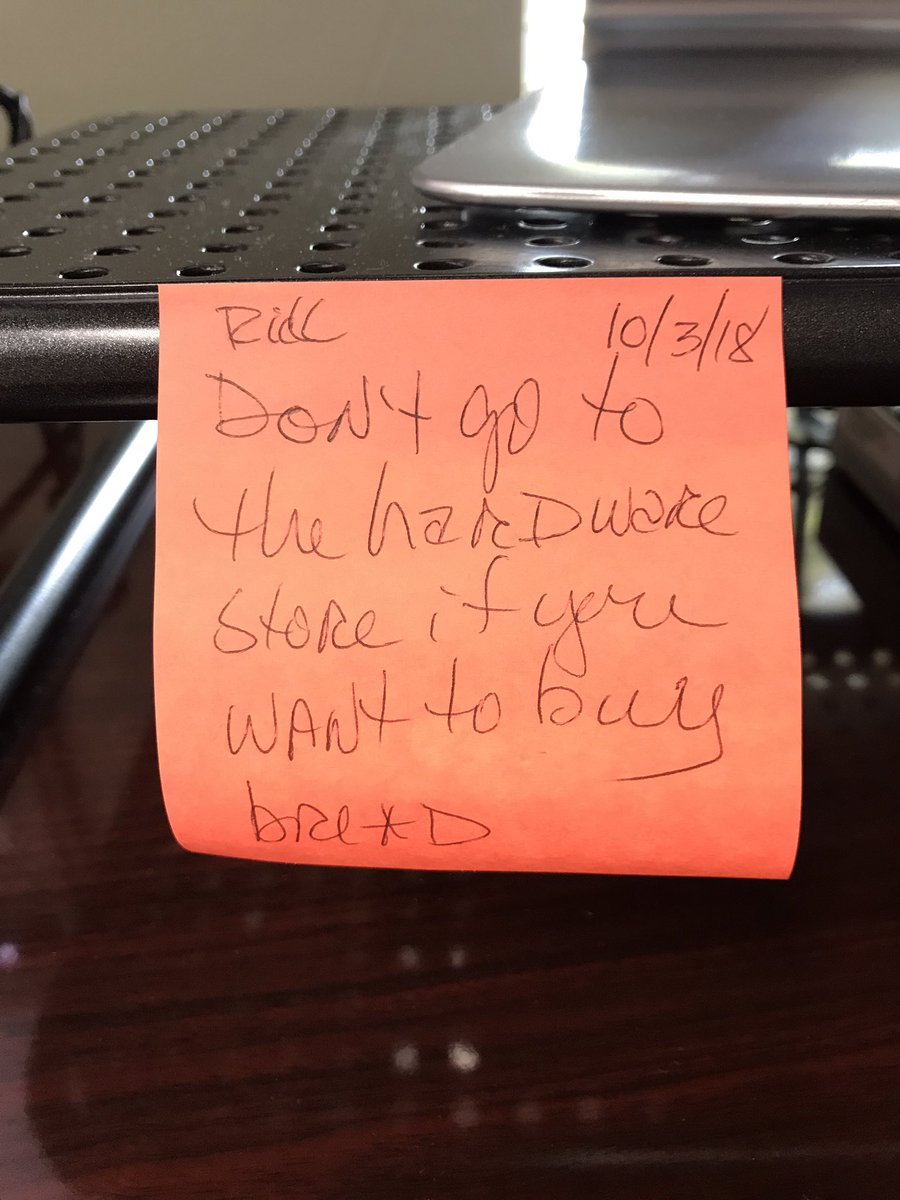 Rick 10/3/18
Don't go to
the hardware
store if you
want to buy
bread